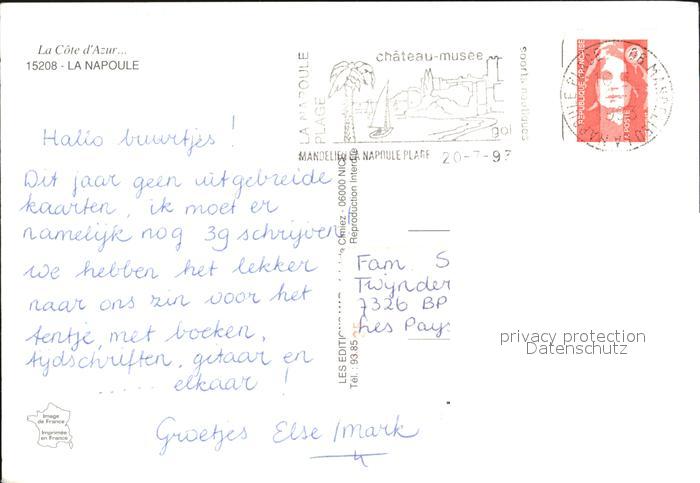 La Côte d'Azur...
15208 - LA NAPOULE
LA NAPOULE
PLAGE
château-musée
sports nautiques
golf
MANDELIEU LA NAPOULE PLAGE 20-7-93
REPUBLIQUE FRANÇAISE
LA POSTE
Hallo buurtjes!
Dit jaar geen uitgebreide
kaarten, ik moet er
namelijk nog 39 schrijven
we hebben het lekker
naar ons zin voor het
tentje, met boeken,
tijdschriften, gitaar en
..... elkaar !
Groetjes Else/Mark
LES EDITIONS
Cimiez - 06000 NICE
Tél. : 93.85
Reproduction Interdite
Fam. S
Twijnder
7326 BP
Les Pays
privacy protection
Datenschutz
Image
de France
Imprimée
en France